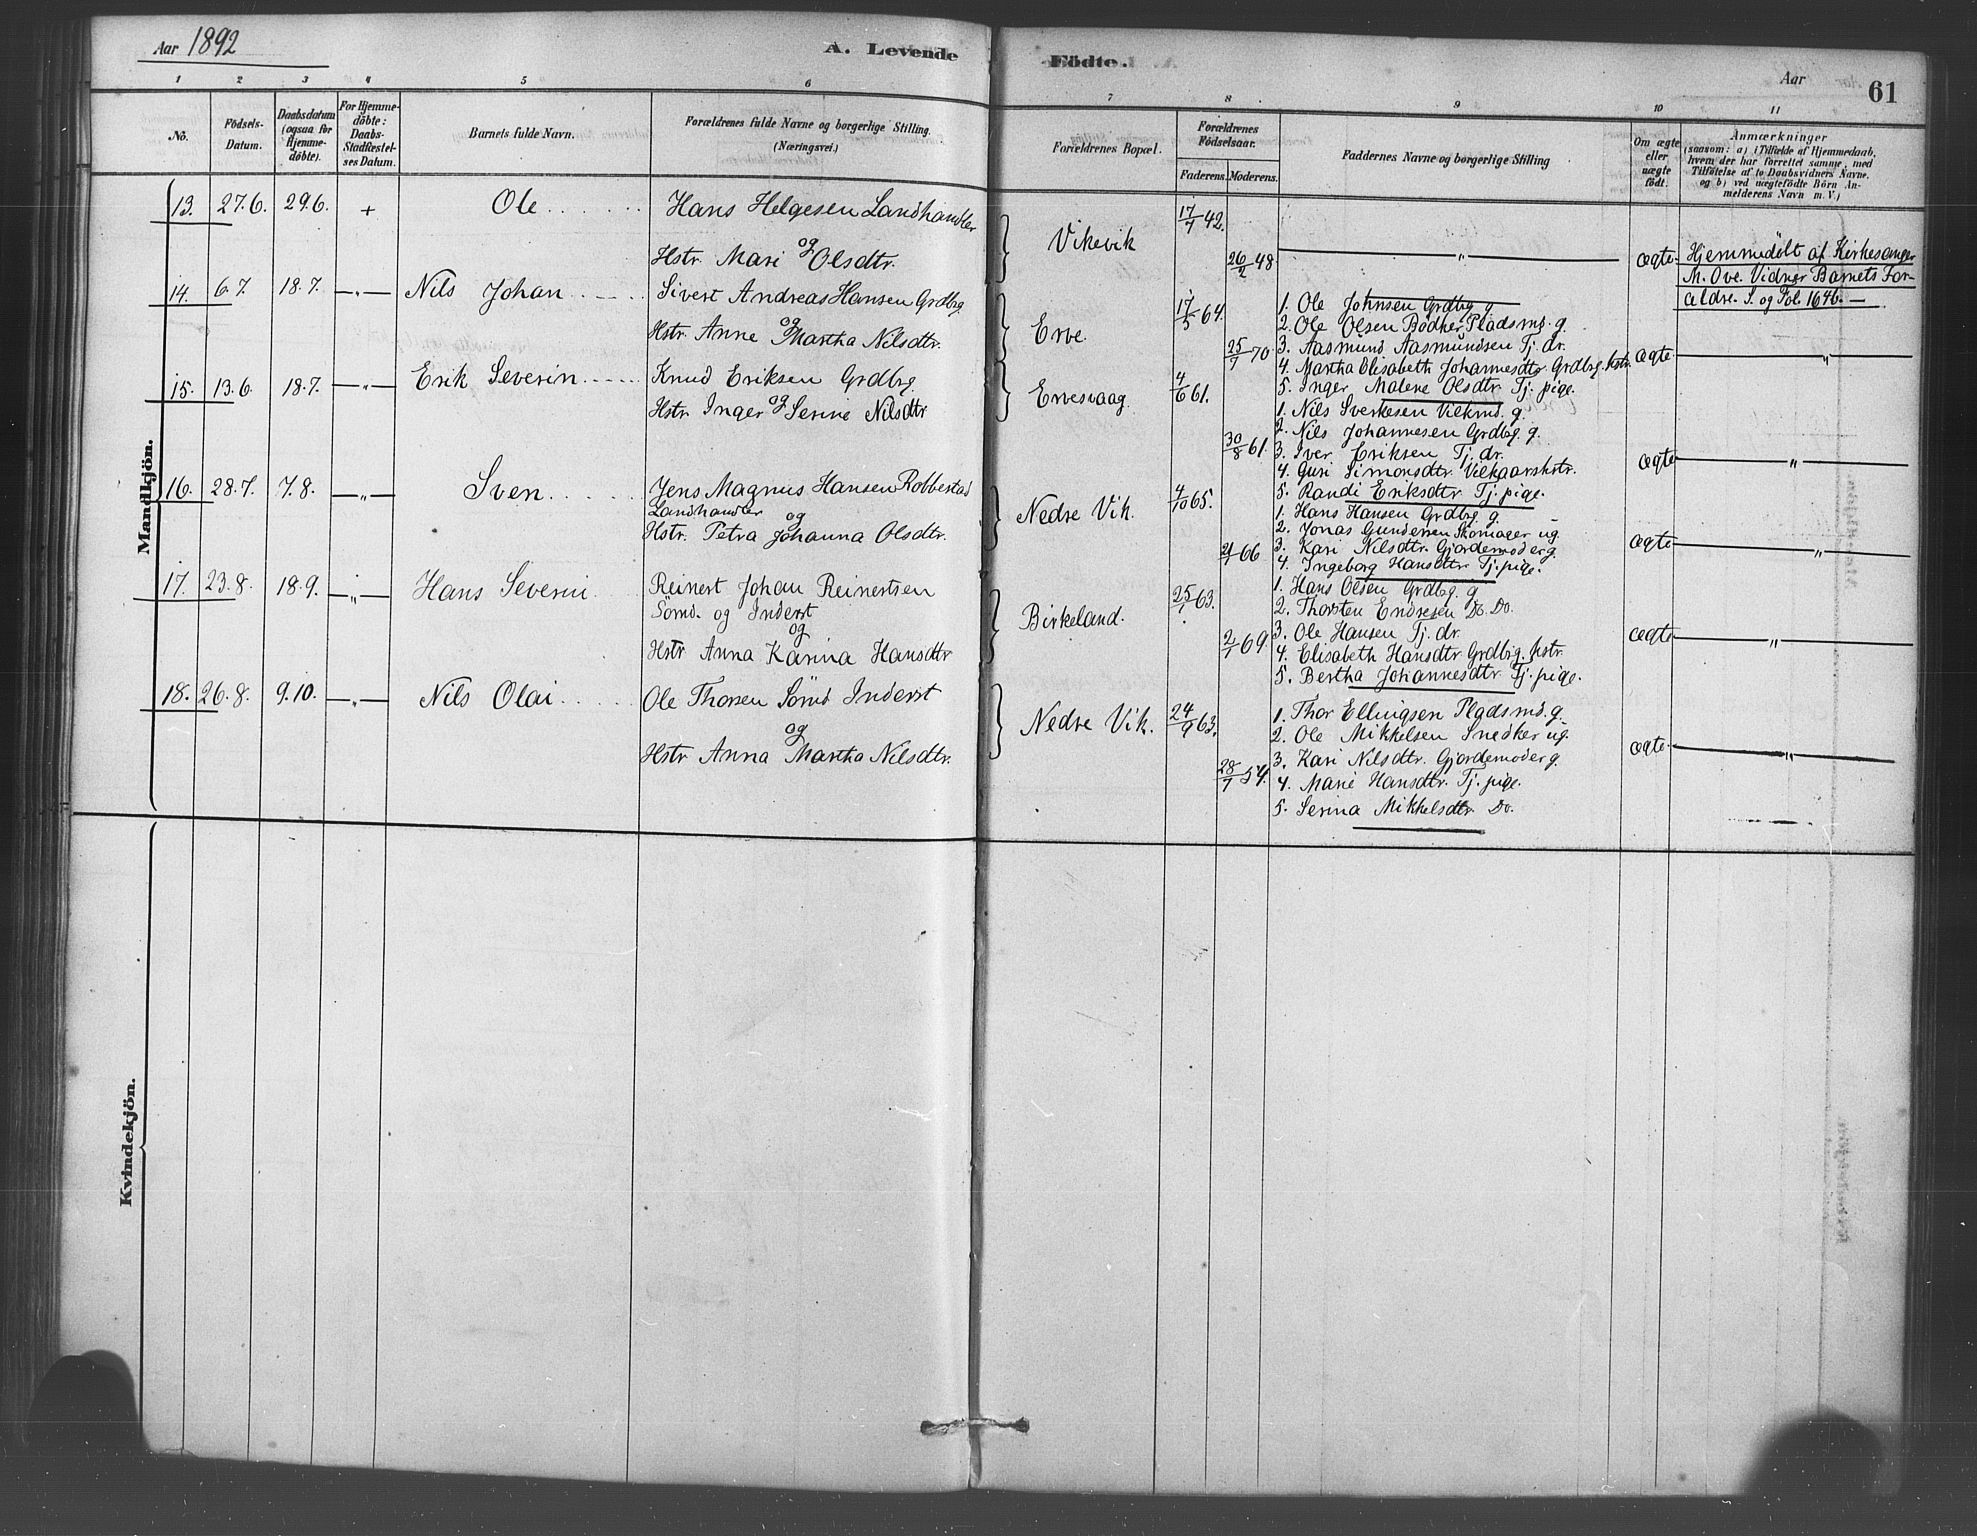 Aar 1892
A. Levende
Födte.
Aar
61
1 2 3 4 5 6 7 8 9 10 11
No.
Födsels-
Datum.
Daabsdatum
(ogsaa for
Hjemme-
döbte).
For Hjemme-
döbte:
Daabs-
Stadfæstel-
ses Datum.
Barnets fulde Navn.
Forældrenes fulde Navne og borgerlige Stilling.
(Næringsvei.)
Forældrenes Bopæl.
Forældrenes
Födselsaar.
Faderens. Moderens.
Faddernes Navne og borgerlige Stilling
Om ægte
eller
uægte
födt.
Anmærkninger
(saasom: a) i Tilfælde af Hjemmedaab,
hvem der har forrettet samme, med
Tilföielse af to Daabsvidners Navne.
og b) ved uægtefödte Börn An-
melderens Navn m. V.)
Mandkjön.
13. 27.6. 29.6. + Ole
Hans Helgesen Landhandler
og
Hstr. Mari Olsdtr.
Vikevik
17/7 42.
26/2 48
"
ægte
Hjemmedöbt af Kirkesanger
M. Ove. Vidner Barnets For-
ældre. S. og Pol. 1646.
14. 6.7. 18.7. —"— Nils Johan
Sivert Andreas Hansen Grdbrg.
og
Hstr. Anne Martha Nilsdtr.
Erve.
17/5 64.
25/7 70
1. Ole Johnsen Grdbg. g.
2. Ole Olsen Bödker Pladsmd. g.
3. Aasmund Aasmundsen Tj. dr.
4. Martha Elisabeth Johannesdtr Grdbrg. kstr.
5. Inger Malene Olsdtr. Tj. pige.
ægte
"
15. 13.6. 18.7. —"— Erik Severin
Knud Eriksen Grdbrg.
og
Hstr. Inger Serine Nilsdtr
Ervesvaag.
4/6 61.
30/8 61.
1. Nils Sverkesen Vilkmd. g.
2. Nils Johannesen Grdbg. g.
3. Iver Eriksen Tj. dr.
4. Guri Simonsdtr. Vilkaarskstr.
5. Randi Eriksdtr. Tj. pige.
ægte
"
16. 28.7. 7.8. —"— Sven
Jens Magnus Hansen Robberstad
Landhandler
og
Hstr. Petra Johanna Olsdtr.
Nedre Vik.
4/10 65.
66
1. Hans Hansen Grdbg. g.
2. Jonas Gundersen Skomager ug.
3. Kari Nilsdtr. Gjordemoder g.
4. Ingeborg Hansdtr. Tj. pige.
ægte
"
17. 23.8. 18.9. —"— Hans Severin
Reinert Johan Reinertsen
Sömd. og Inderst
og
Hstr Anna Karina Hansdtr
Birkeland.
25/1 63.
2/1 69.
1. Hans Olsen Grdbg. g
2. Thorsten Endresen Do. Do.
3. Ole Hansen Tj. dr.
4. Elisabeth Hansdtr Grdbrg. kstr.
5. Bertha Johannesdtr Tj. pige.
ægte
"
18. 26.8. 9.10. —"— Nils Olai
Ole Thorsen Sömd Inderst
og
Hstr Anna Martha Nilsdtr.
Nedre Vik.
24/9 63.
28/1 57.
1. Thor Ellingsen Pladsmd. g.
2. Ole Mikkelsen Snedker ug.
3. Kari Nilsdtr. Gjordemoder g.
4. Marie Hansdtr. Tj. pige.
5. Serina Mikkelsdtr. Do.
ægte
"
Kvindekjön.